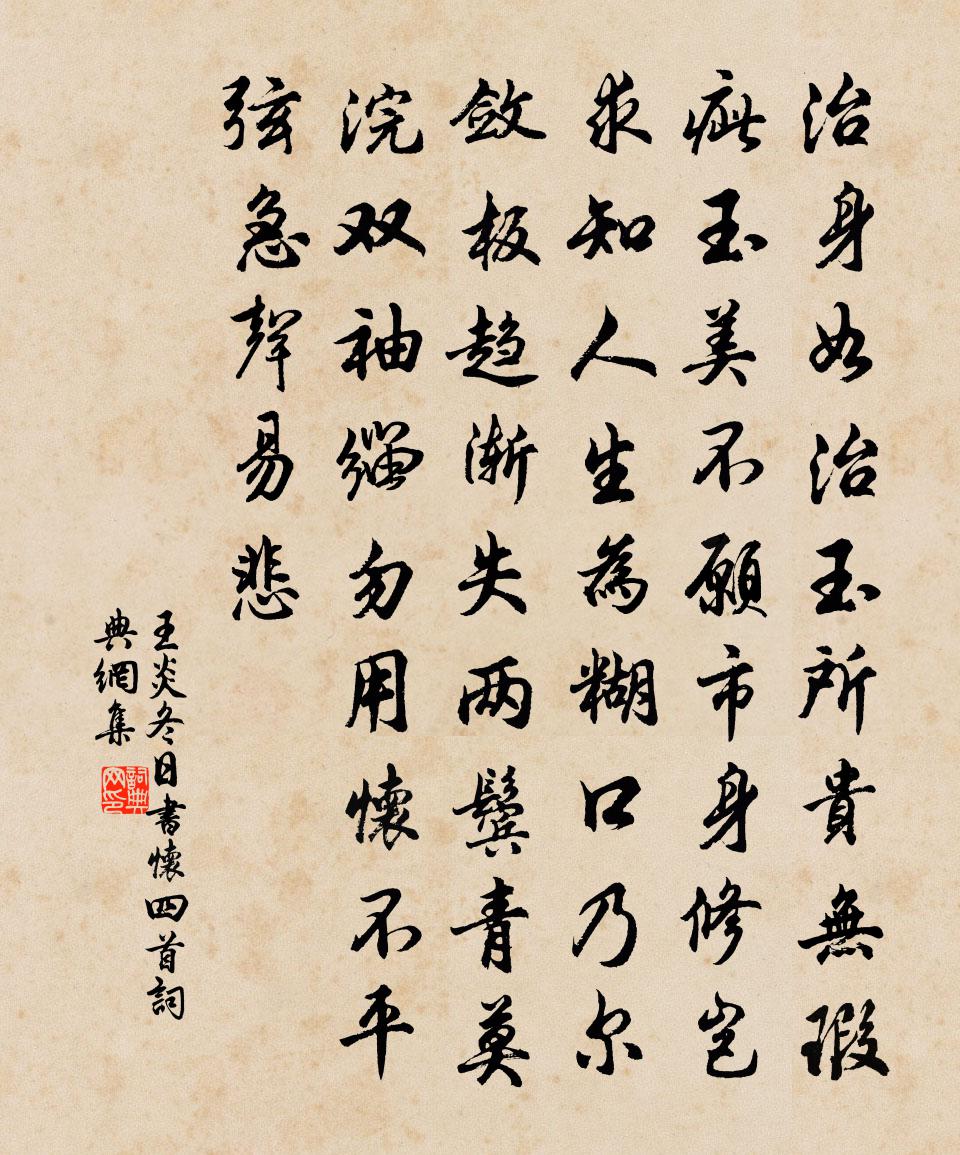 治身如治玉所貴無瑕
疵玉美不願市身修岂
求知人生為糊口乃尔
斂板趋渐失两鬓青莫
浣双袖缁勿用懷不平
弦急聲易悲
王炎冬日書懷四首詞
典網集
詞典
网印